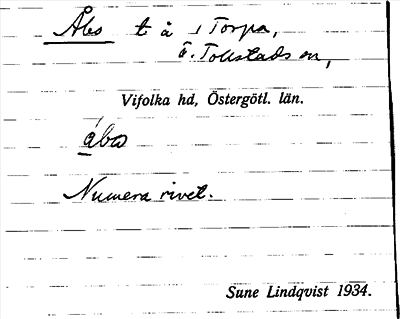 Åbo t å i Torpa,
Ö. Tollstads sn,
Vifolka hd, Östergötl. län.
åbo
Numera rivet.
Sune Lindqvist 1934.